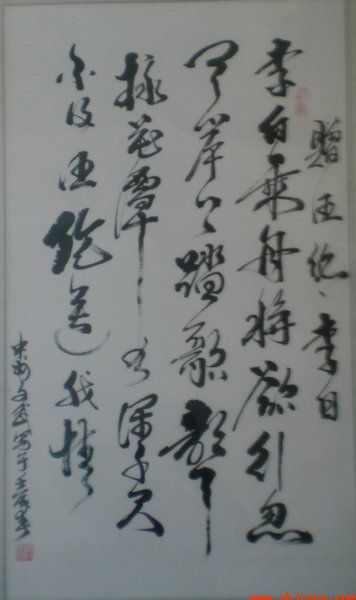 赠汪伦 李白
李白乘舟将欲行忽
闻岸上踏歌声
桃花潭水深千尺
不及汪伦送我情